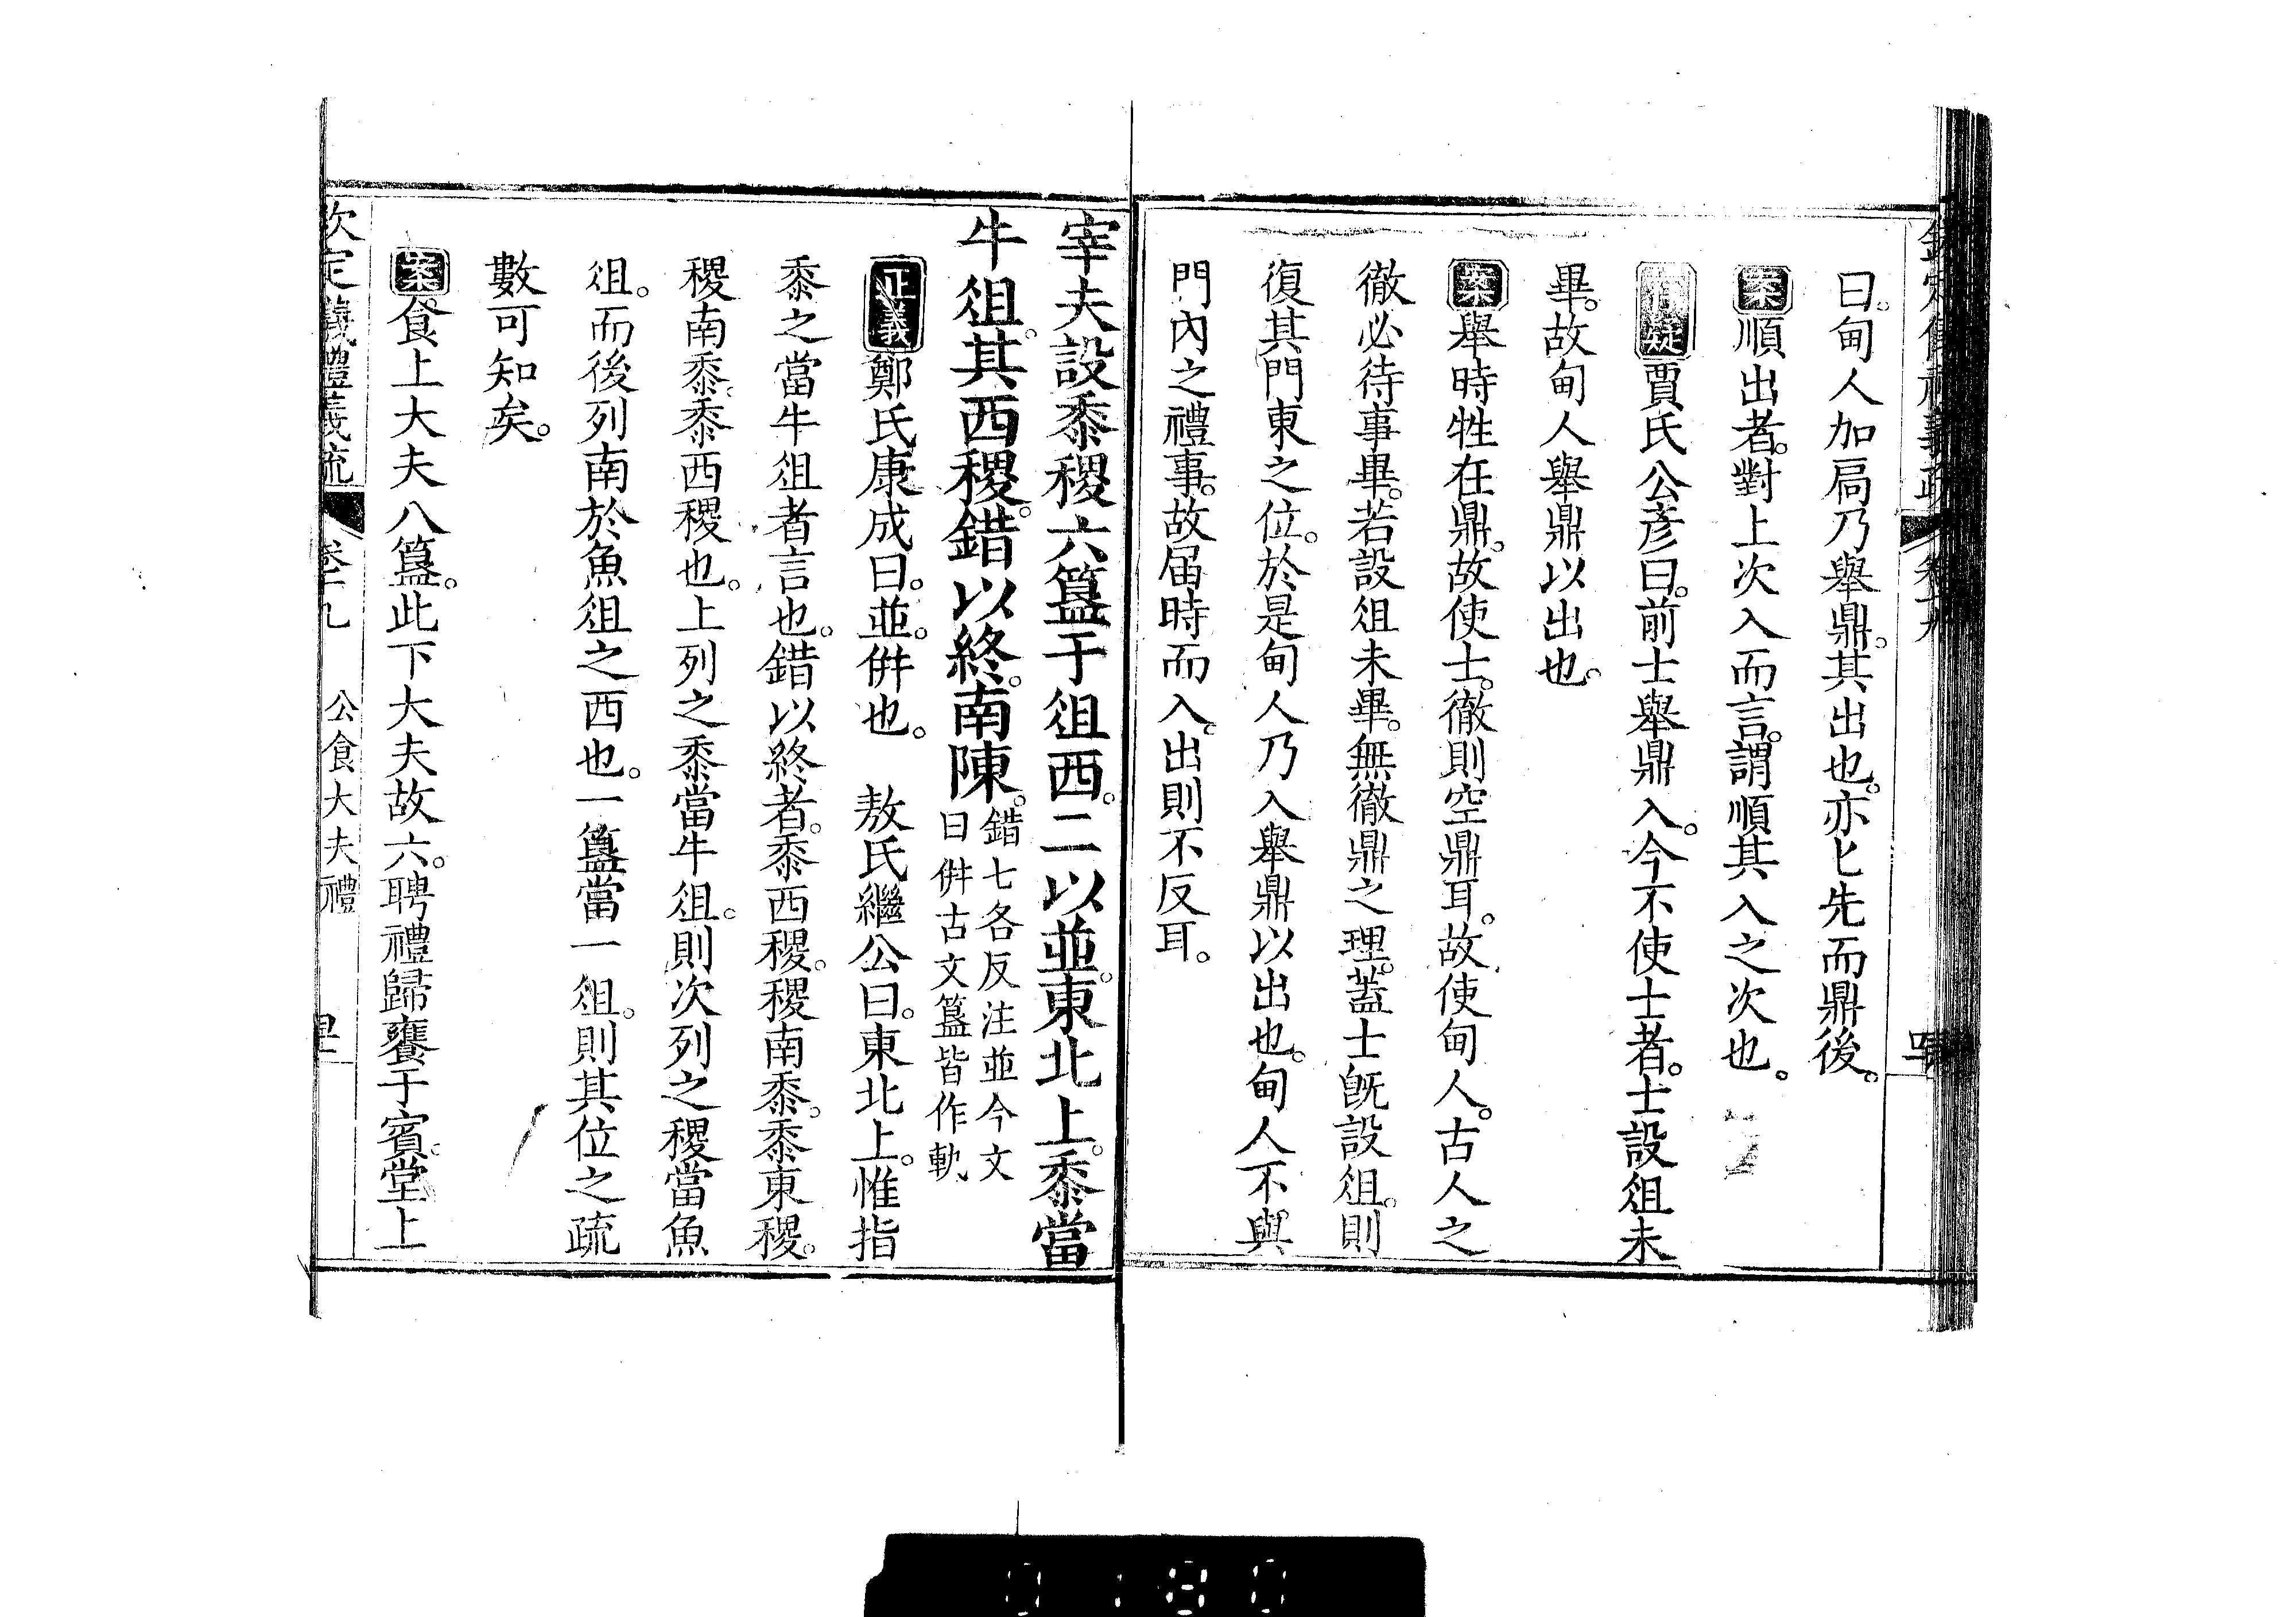 曰。甸人加扃乃舉鼎。其出也。亦匕先而鼎後。
案順出者。對上次入而言。謂順其入之次也。
存疑賈氏公彦曰。前士舉鼎入。今不使士者。士設俎未
畢。故甸人舉鼎以出也。
案舉時牲在鼎。故使士。徹則空鼎耳。故使甸人。古人之
徹必待事畢。若設俎未畢。無徹鼎之理。蓋士旣設俎。則
復其門東之位。於是甸人乃入舉鼎以出也。甸人不與
門內之禮事。故届時而入。出則不反耳。
宰夫設黍稷六簋于俎西。二以並。東北上。黍當
牛俎。其西稷。錯以終。南陳。
錯七各反注並今文
曰併古文簋皆作軌
正義鄭氏康成曰。並。併也。 敖氏繼公曰。東北上。惟指
黍之當牛俎者言也。錯以終者。黍西稷。稷南黍。黍東稷。
稷南黍。黍西稷也。上列之黍當牛俎。則次列之稷當魚
俎。而後列南於魚俎之西也。一簋當一俎。則其位之疏
數可知矣。
案食上大夫八簋。此下大夫故六。聘禮歸饔于賓。堂上
欽定儀禮義疏 卷十九 公食大夫禮
0180